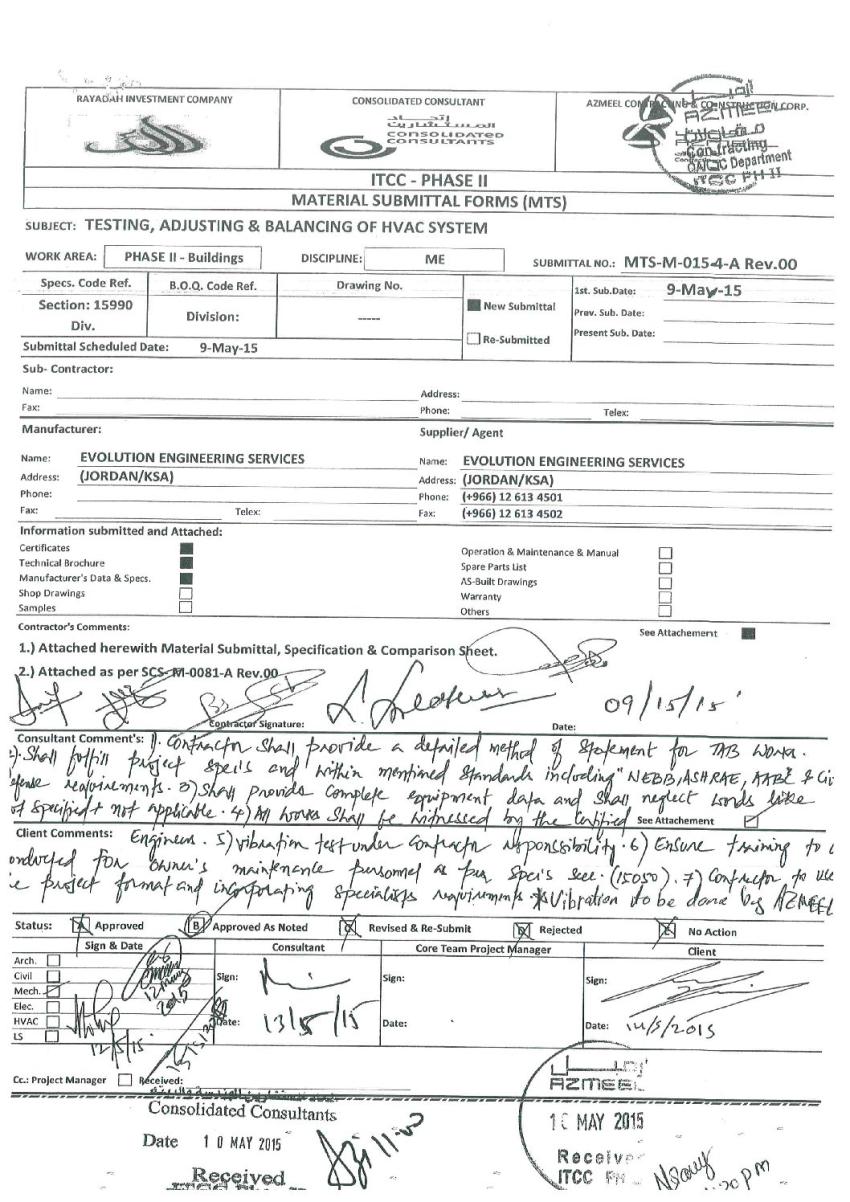 RAYADAH INVESTMENT COMPANY
CONSOLIDATED CONSULTANT
AZMEEL CONTRACTING & CONSTRUCTION CORP.
إتحاد
المستشارين
CONSOLIDATED
CONSULTANTS
أزميل
AZMEEL
Contracting
QA/QC Department
ITCC PH II
ITCC - PHASE II
MATERIAL SUBMITTAL FORMS (MTS)
SUBJECT: TESTING, ADJUSTING & BALANCING OF HVAC SYSTEM
WORK AREA: PHASE II - Buildings DISCIPLINE: ME SUBMITTAL NO.: MTS-M-015-4-A Rev.00
Specs. Code Ref. B.O.Q. Code Ref. Drawing No. 1st. Sub.Date: 9-May-15
Section: 15990 Division: ----- New Submittal Prev. Sub. Date:
Div. Re-Submitted Present Sub. Date:
Submittal Scheduled Date: 9-May-15
Sub- Contractor:
Name: Address:
Fax: Phone: Telex:
Manufacturer: Supplier/ Agent
Name: EVOLUTION ENGINEERING SERVICES Name: EVOLUTION ENGINEERING SERVICES
Address: (JORDAN/KSA) Address: (JORDAN/KSA)
Phone: Phone: (+966) 12 613 4501
Fax: Telex: Fax: (+966) 12 613 4502
Information submitted and Attached:
Certificates Operation & Maintenance & Manual
Technical Brochure Spare Parts List
Manufacturer's Data & Specs. AS-Built Drawings
Shop Drawings Warranty
Samples Others
Contractor's Comments: See Attachement
1.) Attached herewith Material Submittal, Specification & Comparison Sheet.
2.) Attached as per SCS-M-0081-A Rev.00
Contractor Signature: Date: 09/15/15
Consultant Comment's: 1). Contractor shall provide a detailed method of statement for TAB work.
2). Shall fulfill project spec's and within mentioned standards including "NEBB, ASHRAE, AABC &
requirements. 3) Shall provide complete equipment data and shall neglect words like
specified not applicable. 4) All works shall be witnessed by the certified See Attachement
Client Comments: Engineer. 5) vibration test under contractor responssibility. 6) Ensure training to
onducted for owner's maintenance personnel as per spec's sec. (15050). 7) Contractor to use
project format and incorporating specialists requirements * Vibration to be done by AZMEEL
Status: A Approved B Approved As Noted C Revised & Re-Submit D Rejected E No Action
Sign & Date Consultant Core Team Project Manager Client
Arch.
Civil Sign: Sign: Sign:
Mech. 12 May 2015
Elec.
HVAC Date: 13/5/15 Date: Date: 14/5/2015
LS 12/5/15
Cc.: Project Manager Received:
Consolidated Consultants
Date 10 MAY 2015
Received
أزميل
AZMEEL
16 MAY 2015
Receive
ITCC PH